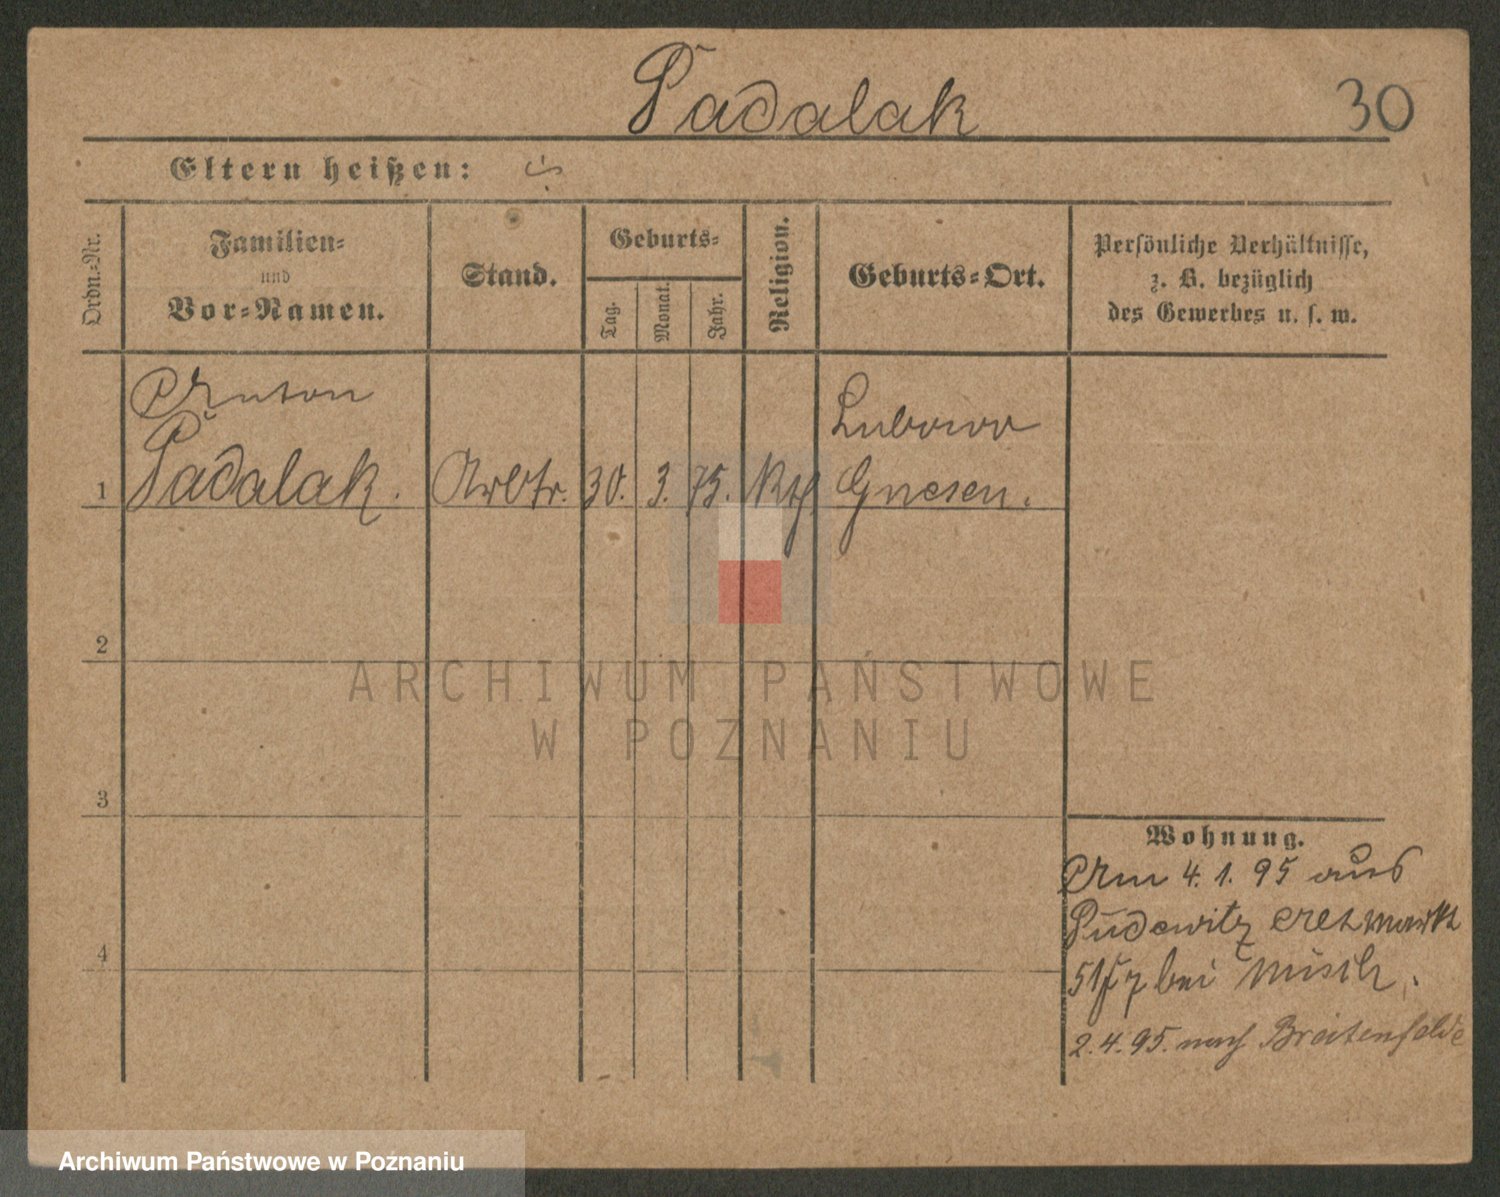 Padalak 30
Eltern heißen:
Ordn.-Nr.
Familien-
und
Vor-Namen.
Stand.
Geburts-
Tag.
Monat.
Jahr.
Religion.
Geburts-Ort.
Persönliche Verhältnisse,
z. B. bezüglich
des Gewerbes u. s. w.
Anton
Padalak.
1
Arbtr.
30.
3.
75.
Kth
Lubowo
Gnesen.
2
3
4
Wohnung.
Am 4. 1. 95 aus
Pudewitz Altmarkt
bei
2.4.95. nach Breitenfelde
ARCHIWUM PAŃSTWOWE
W POZNANIU
Archiwum Państwowe w Poznaniu